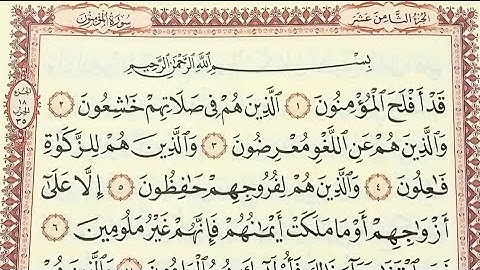 الجزء الثامن عشر
سورة المؤمنون
بِسْمِ ٱللَّهِ ٱلرَّحْمَٰنِ ٱلرَّحِيمِ
قَدْ أَفْلَحَ ٱلْمُؤْمِنُونَ ١ ٱلَّذِينَ هُمْ فِى صَلَاتِهِمْ خَٰشِعُونَ ٢
وَٱلَّذِينَ هُمْ عَنِ ٱللَّغْوِ مُعْرِضُونَ ٣ وَٱلَّذِينَ هُمْ لِلزَّكَوٰةِ
فَٰعِلُونَ ٤ وَٱلَّذِينَ هُمْ لِفُرُوجِهِمْ حَٰفِظُونَ ٥ إِلَّا عَلَىٰٓ
أَزْوَٰجِهِمْ أَوْ مَا مَلَكَتْ أَيْمَٰنُهُمْ فَإِنَّهُمْ غَيْرُ مَلُومِينَ ٦